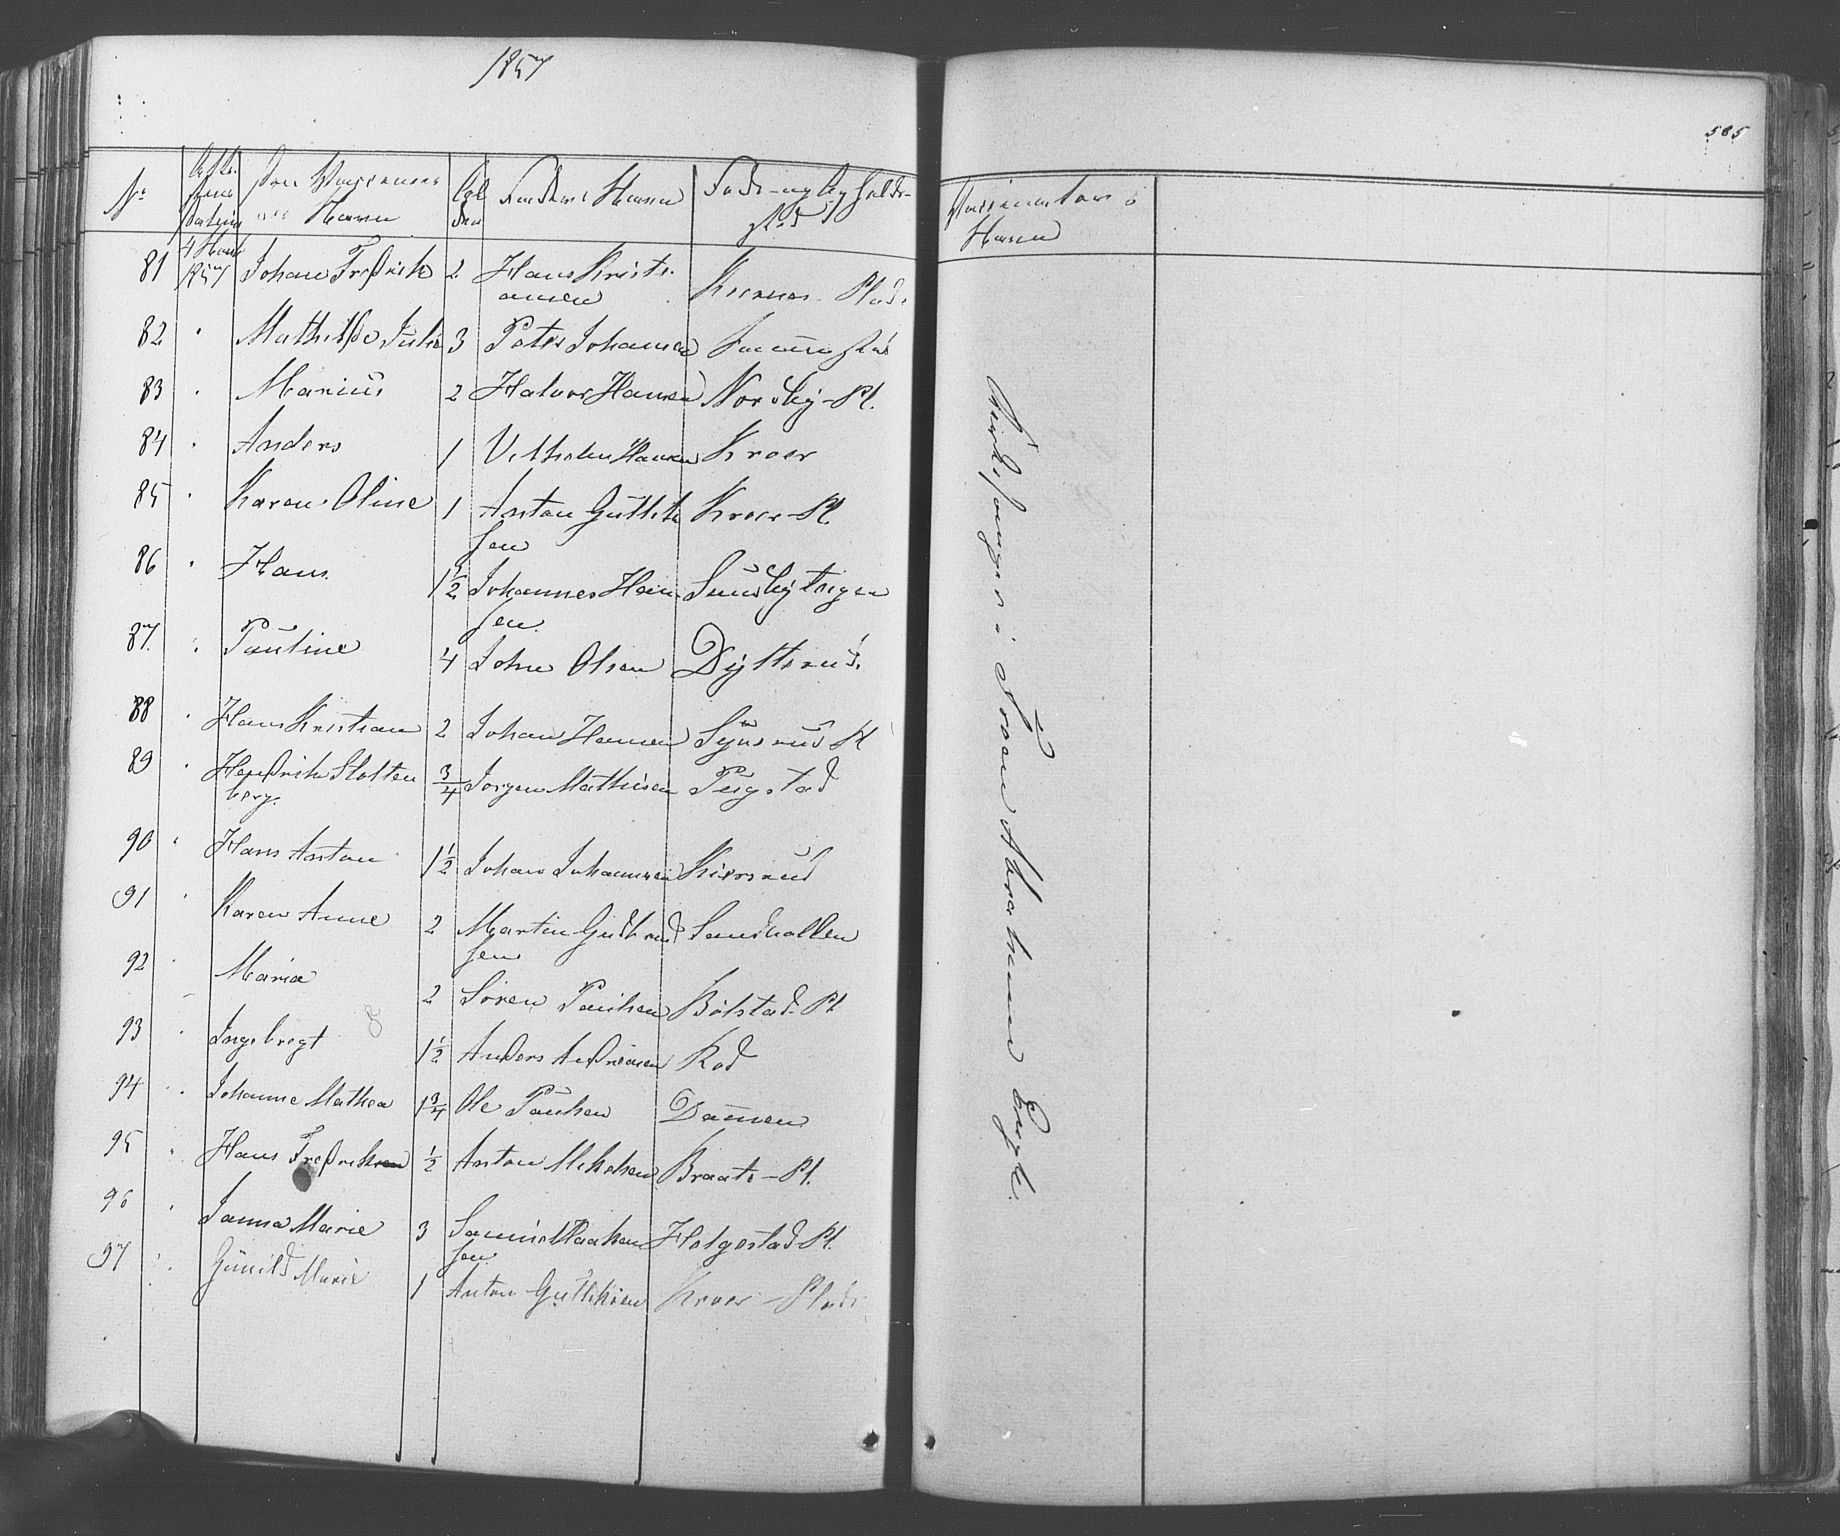 1857
585
No
Attestens Datum
Den Vaccineredes Navn
Alderen
Faderens Navn
Føde- og Opholdssted
Vaccinators Navn
81 4 Mai 1857 Johan Fredrik 2 Hans Kristiansen Kiernes Plads
82 " Mathilde Julie 3 Peter Johansen
83 " Marius 2 Halvor Hansen Nordby-Pl.
84 " Anders 1 Vilhelm Hansen Kroer
85 " Karen Oline 1 Anton Gulliksen Kroer-Pl.
86 " Hans 1 1/2 Johannes Hansen Sundbyeigen
87. " Pauline 4 John Olsen Dyttsrud.
88 " Hans Kristian 2 Johan Hansen Synsrud Pl
89 " Hendrik Stoltenberg. 3/4 Jørgen Mathisen Pugstad
90 " Hans Anton 1 1/2 Johan Johannsen Kiersrud
91 " Karen Anne 2 Martin Gudbrandsen
92 " Maria 2 Søren Paulsen Bølstad-Pl.
93 " Ingebregt 1 1/2 Anders Andreasen Rød
94 " Johanne Mathea 1 3/4 Ole Paulsen Dammen
95 " Hans Fredriksen 1/2 Anton Mikelsen Braate-Pl.
96 " Janna Marie 3 Samuel Haakensen Holgestad-Pl.
97 " Gunild Marie 1 Anton Gulliksen Kroer-Plads
Kirkesanger i Kroer Abrahamsen Engh.